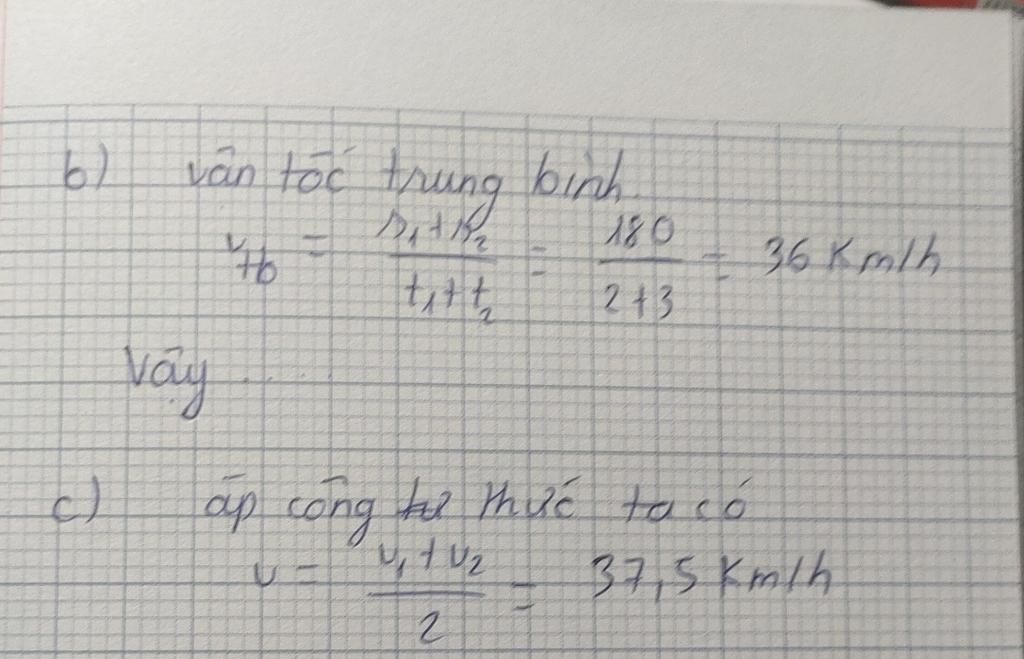 b) vân tốc trung bình.
v_tb = (s₁+s₂)/(t₁+t₂) = 180/(2+3) = 36 Km/h
Vậy .....
c) áp công thức ta có
v = (v₁+v₂)/2 = 37,5 Km/h